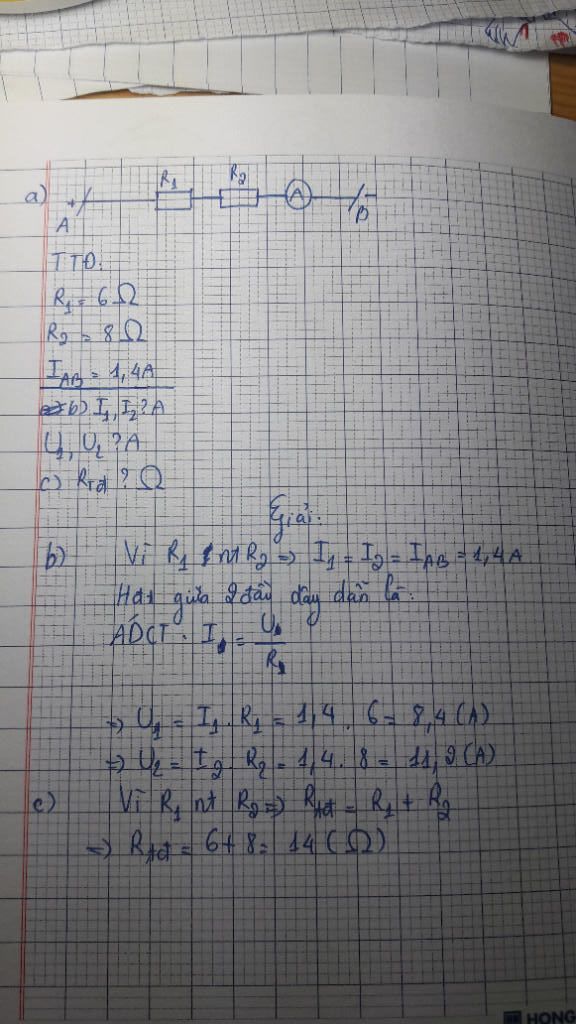 a)
R₁ R₂
A + A B -
TTĐ:
R₁ = 6 Ω
R₂ = 8 Ω
I_AB = 1,4A
b) I₁, I₂ ? A
U₁, U₂ ? A
c) R_Tđ ? Ω
Giải:
b) Vì R₁ nt R₂ => I₁ = I₂ = I_AB = 1,4A
Hđt giữa 2 đầu dây dẫn là:
ADCT: I₁ = U₁/R₁
=> U₁ = I₁ . R₁ = 1,4 . 6 = 8,4 (A)
=> U₂ = I₂ . R₂ = 1,4 . 8 = 11,2 (A)
c) Vì R₁ nt R₂ => R_tđ = R₁ + R₂
=> R_tđ = 6 + 8 = 14 (Ω)
HONG